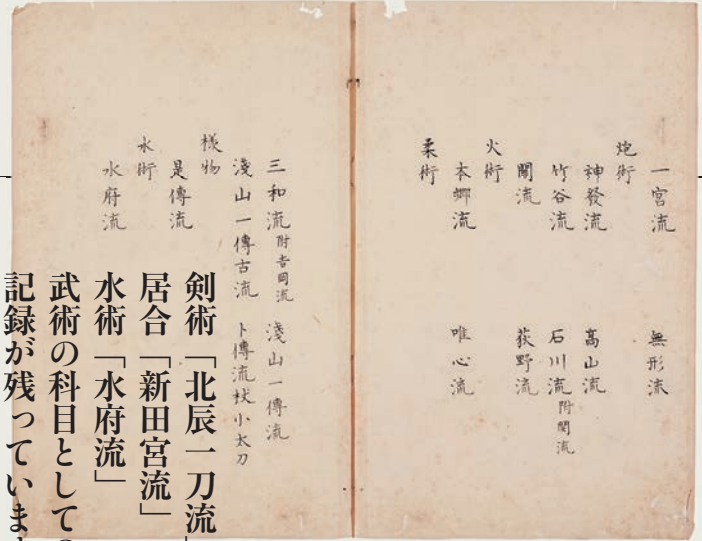 一宮流　無形流
炮術
神發流　髙山流
竹谷流　石川流附関流
関流　荻野流
火術
本郷流　唯心流
柔術
三和流附吉岡流　淺山一傳流
淺山一傳古流　卜傳流杖小太刀
様物
是傳流
水術
水府流
剣術「北辰一刀流」
居合「新田宮流」
水術「水府流」
武術の科目としての
記録が残っていま